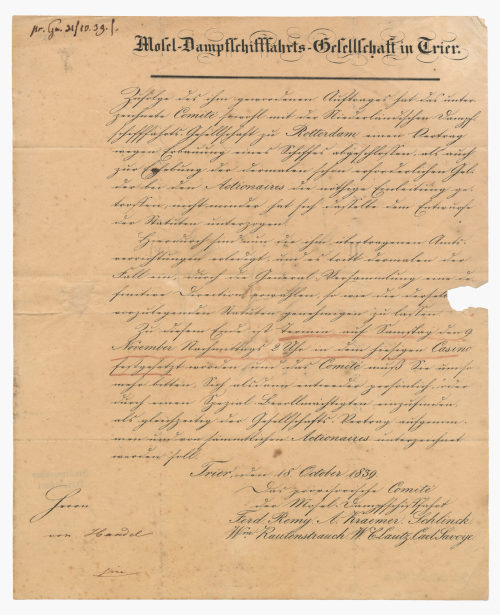 pr. Gu. 21/10. 39.
Mosel-Dampfschifffahrts-Gesellschaft in Trier.
Zufolge des ihm gewordenen Auftrages hat das unter-
zeichnete Comité sowohl mit der Niederländischen Dampf-
schifffahrts Gesellschaft zu Rotterdam einen Vertrag
wegen Erbauung eines Schiffes abgeschlossen, als auch
zur Erhebung der dermalen schon erforderlichen Gel-
der bei den Actionaires die nöthige Einleitung ge-
troffen, nicht minder hat sich dasselbe dem Entwurfe
der Statuten unterzogen.
Hierdurch sind nun die ihm übertragenen Amts-
verrichtungen erledigt, und es tritt dermalen der
Fall ein, durch die General-Versammlung eine de-
finitive Direction zu wählen, so wie die derselben
vorzulegenden Statuten genehmigen zu lassen.
Zu diesem Ende ist Termin auf Samstag den 9
November Nachmittags 2 Uhr in dem hiesigen Casino
festgesetzt worden und das Comité muß Sie um so
mehr bitten, Sich alsdann entweder persönlich oder
durch einen Spezial-Bevollmächtigten einzufinden,
als gleichzeitig der Gesellschafts-Vertrag aufgenom-
men und von sämmtlichen Actionaires unterzeichnet
werden soll.
Trier, den 18 October 1839
Das provisorische Comité
der Mosel-Dampfschifffahrt
Ferd. Remy. A. Kraemer. Schlinck.
Wm. Rautenstrauch. W. E. Lautz. Carl Savoye.
Herrn
von Handel